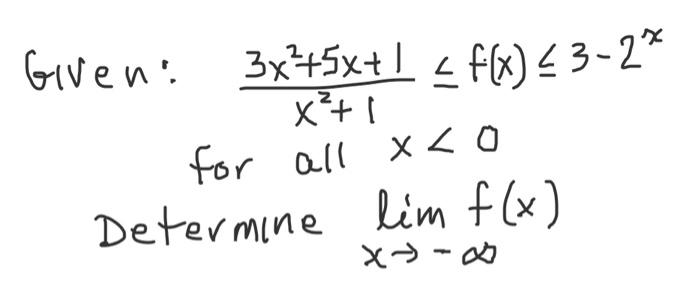 Given: (3x²+5x+1)/(x²+1) ≤ f(x) ≤ 3-2^x
for all x < 0
Determine lim f(x)
x→-∞